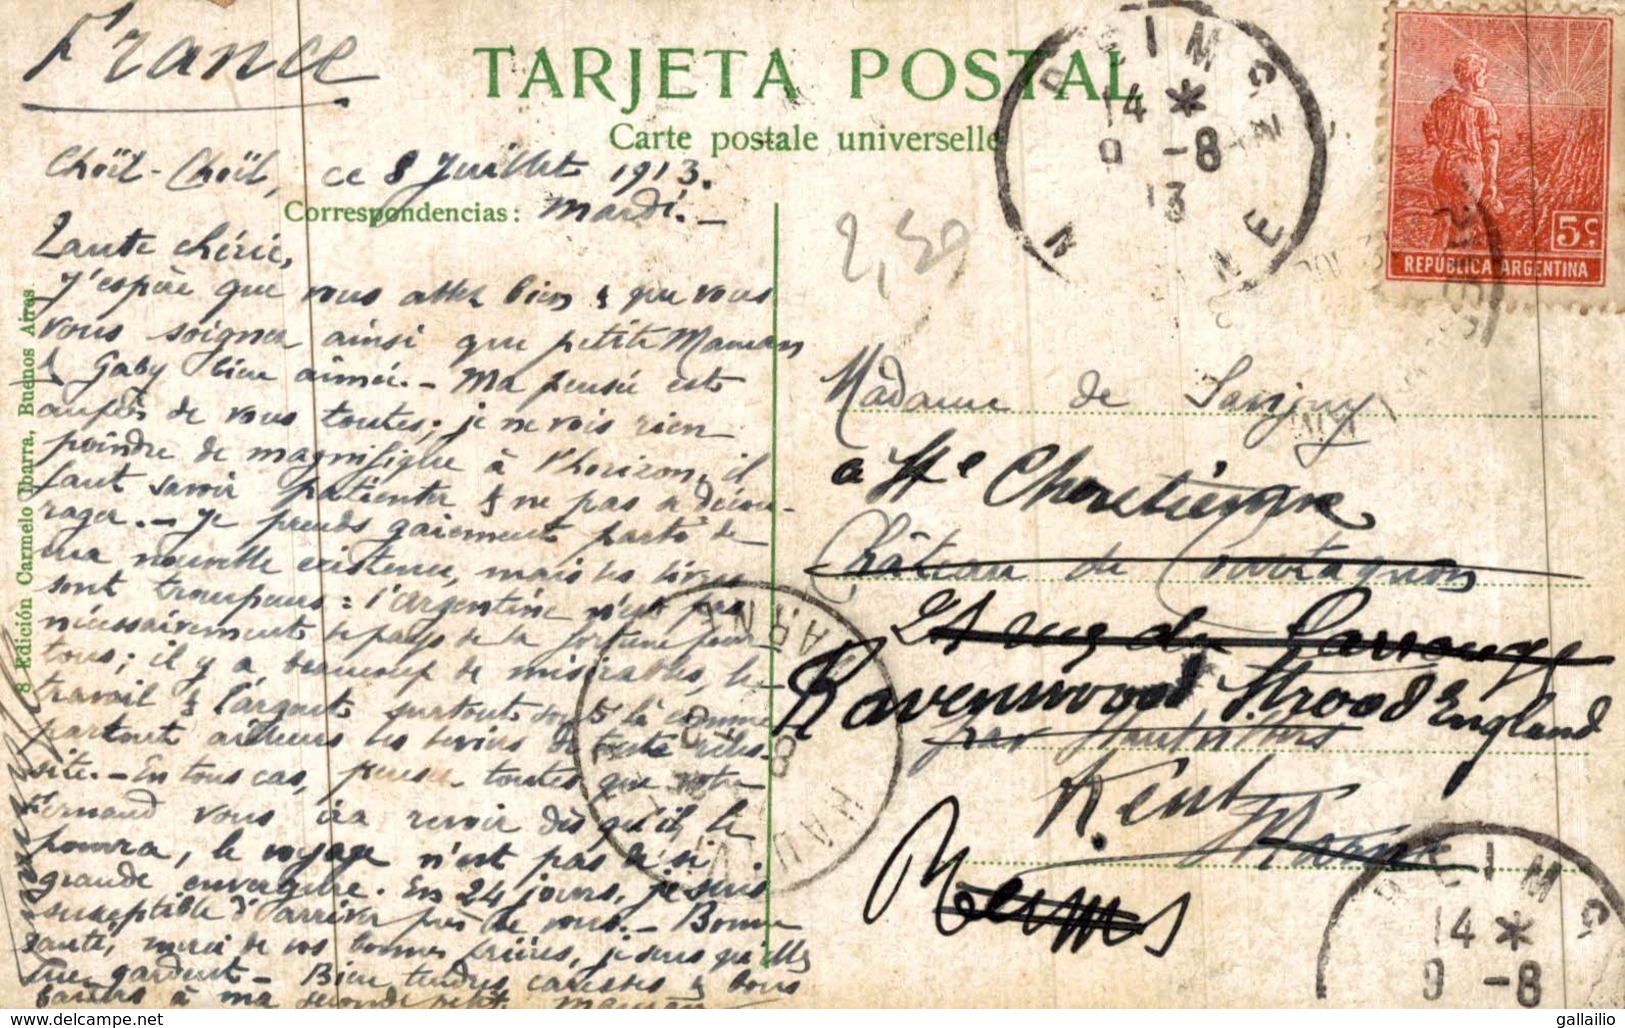 France
TARJETA POSTAL
Carte postale universelle
Choïl-Choïl, ce 8 Juillet 1913.
Correspondencias: Mardi.-
Tante chérie,
J'espère que vous allez bien & que vous
vous soignez ainsi que petite Maman
& Gaby bien aimée.- Ma pensée est
auprès de vous toutes; je ne vois rien
poindre de magnifique à l'horizon, il
faut savoir patienter & ne pas se décou-
rager.- Je prends gaiement parti de
ma nouvelle existence, mais les livres
sont trompeurs: l'Argentine n'est pas
nécessairement le pays de la fortune pour
tous; il y a beaucoup de misérables, le
travail & l'argent surtout sont là comme
partout ailleurs les devins de toute réus-
site.- En tous cas, pensez toutes que votre
Fernand vous ira revoir dès qu'il le
pourra, le voyage n'est pas de si
grande envergure. En 24 jours, je suis
susceptible d'arriver près de vous.- Bonne
santé, merci de vos bonnes prières, je sens qu'elles
me gardent.- Bien tendres caresses & bons
baisers à ma seconde petite Maman
8. Edición Carmelo Ibarra, Buenos Aires.
2,50
REIMS
14 * 9 -8 13
MARNE
5c.
REPÚBLICA ARGENTINA
Madame de
a Ste Chrétienne
Château de
rue du
Ravenswood Strood England
par
Kent
Marne
Reims
MARNE
8
REIMS
14 *
9 -8
gallailio